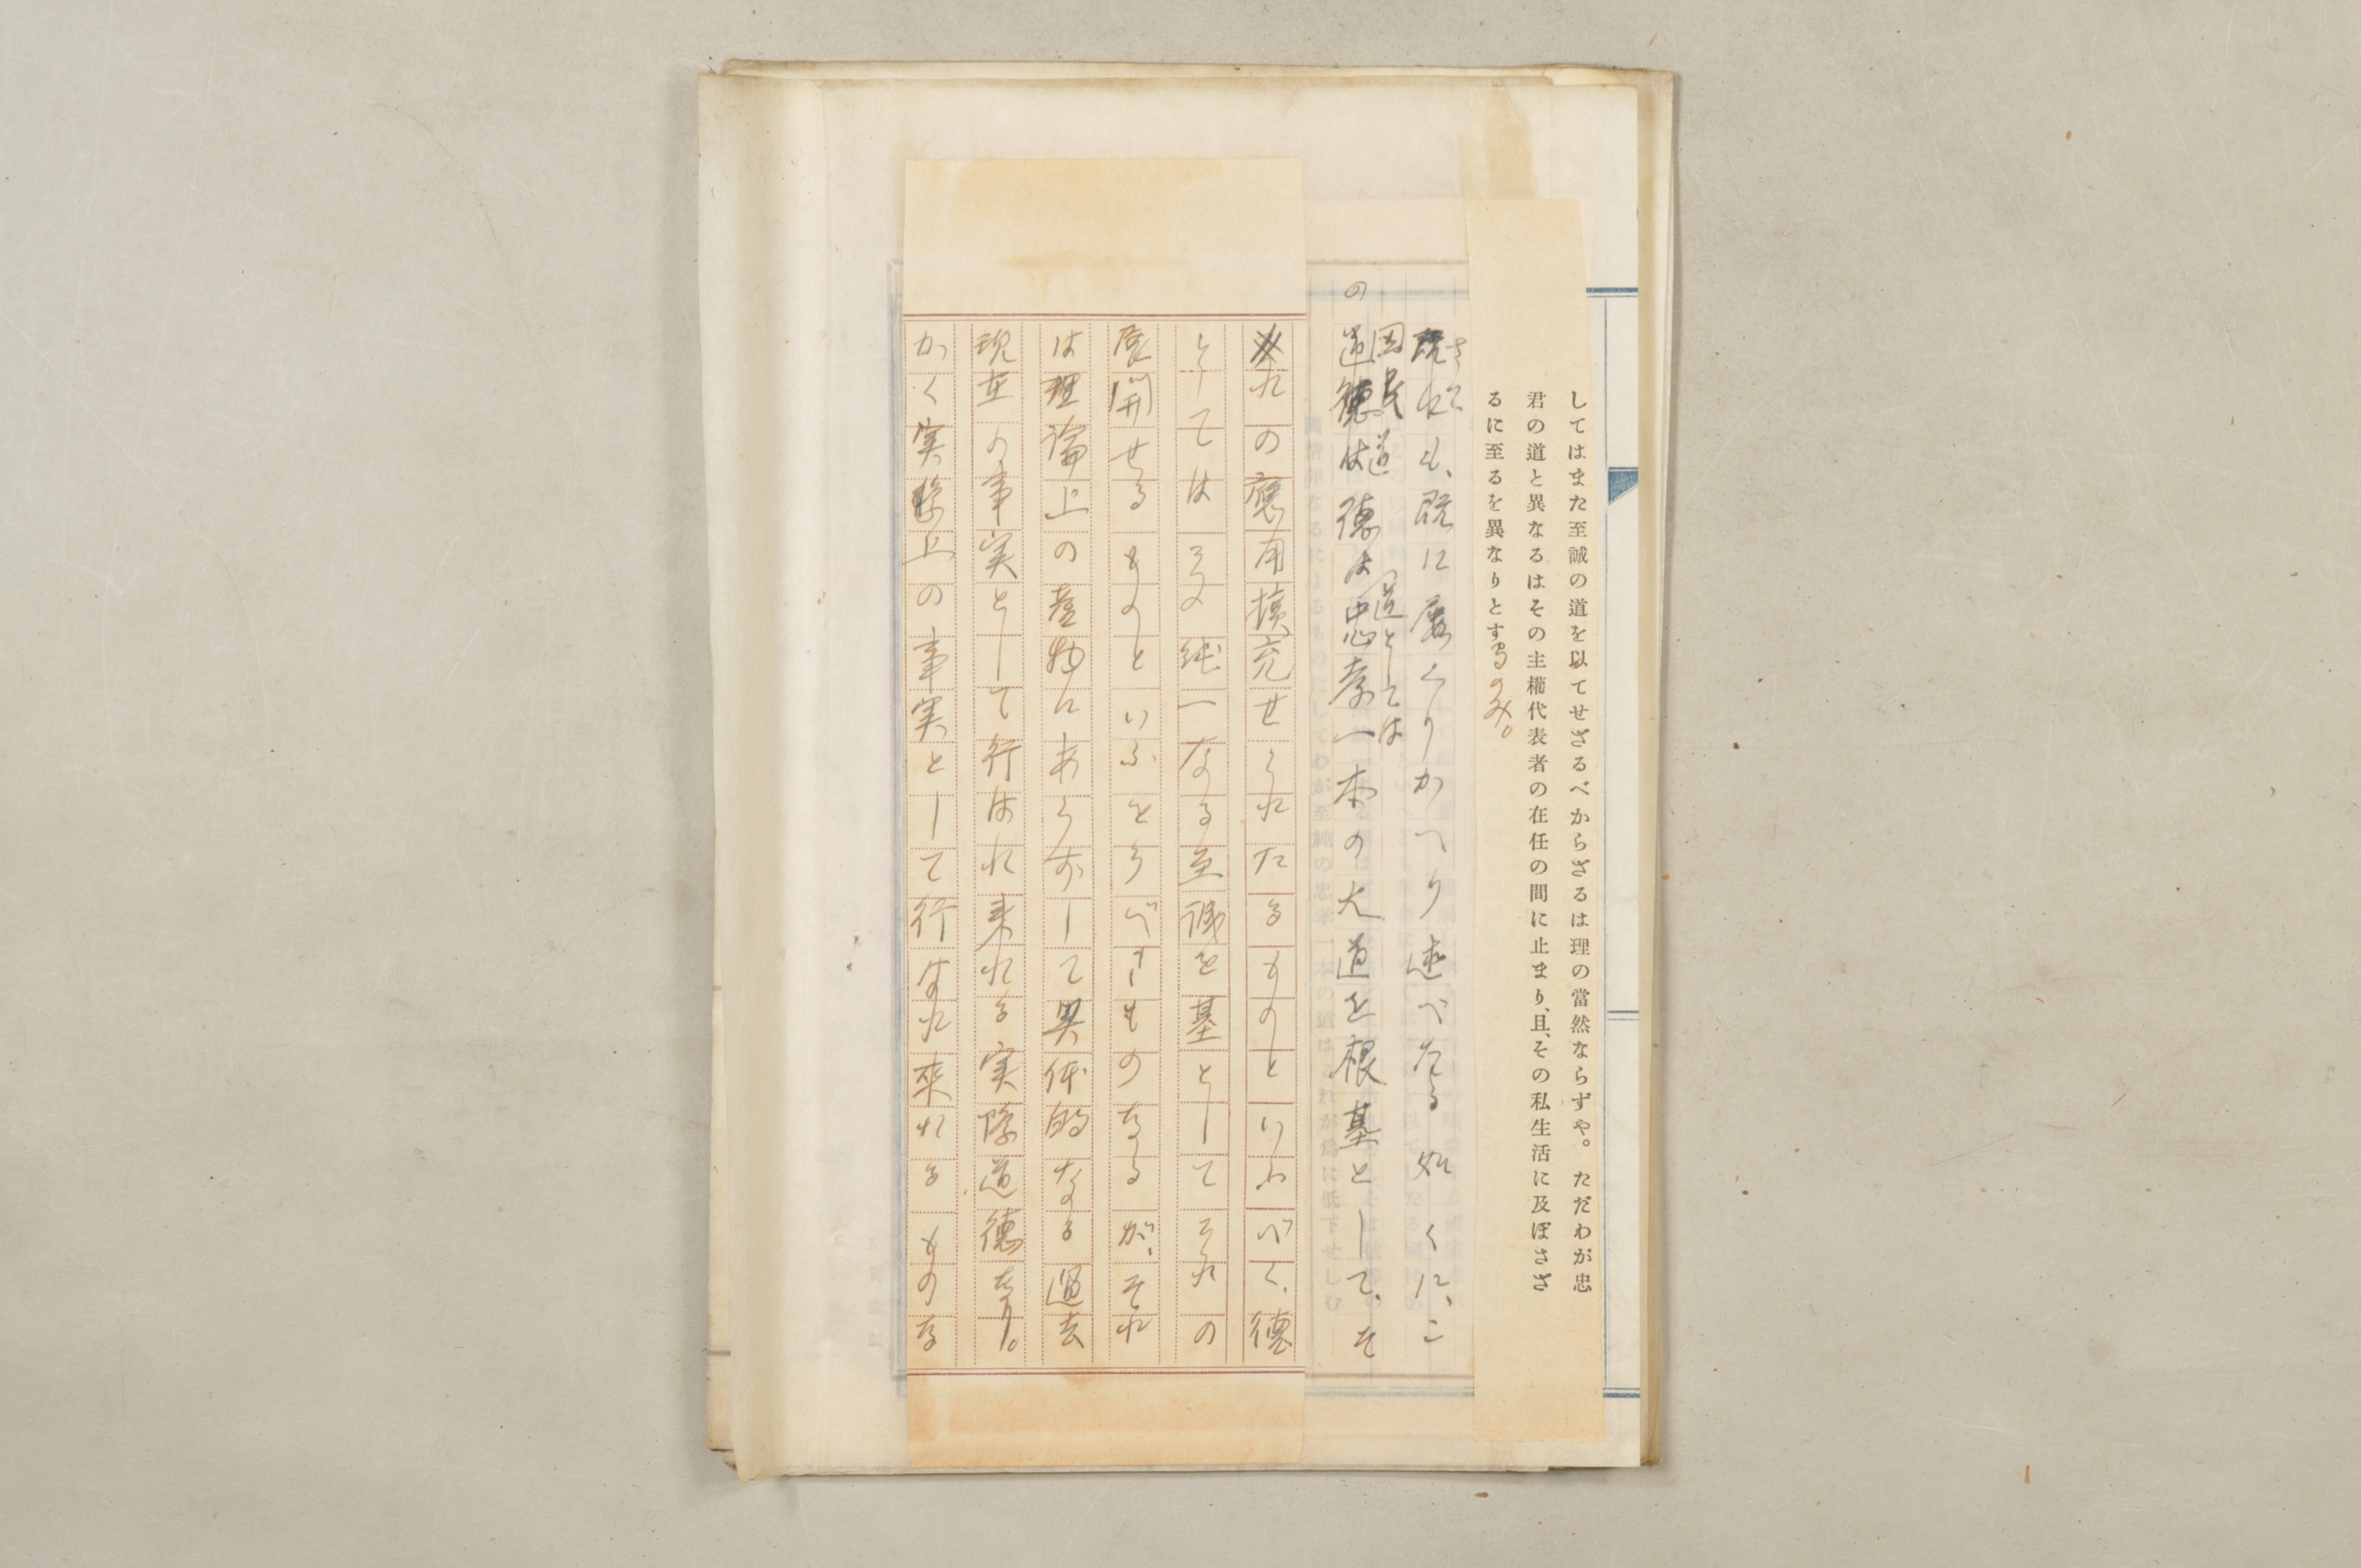 してはまた至誠の道を以てせざるべからざるは理の當然ならずや。ただわが忠
君の道と異なるはその主權代表者の在任の間に止まり、且、その私生活に及ぼさざ
るに至るを異なりとするのみ。
されども、既に屢くりかへり述べたる如くに、こ
の國民道德は道としては忠孝一本の大道を根基として、そ
れの應用擴充せられたるものといふべく、德
としてはその純一なる至誠を基としてそれの
展開せるものといふをうべきものなるが、それ
は理論上の産物にあらずして具体的なる過去
現在の事実として行はれ来れる実際道德なり。
かく実際上の事実として行はれ來れるものな